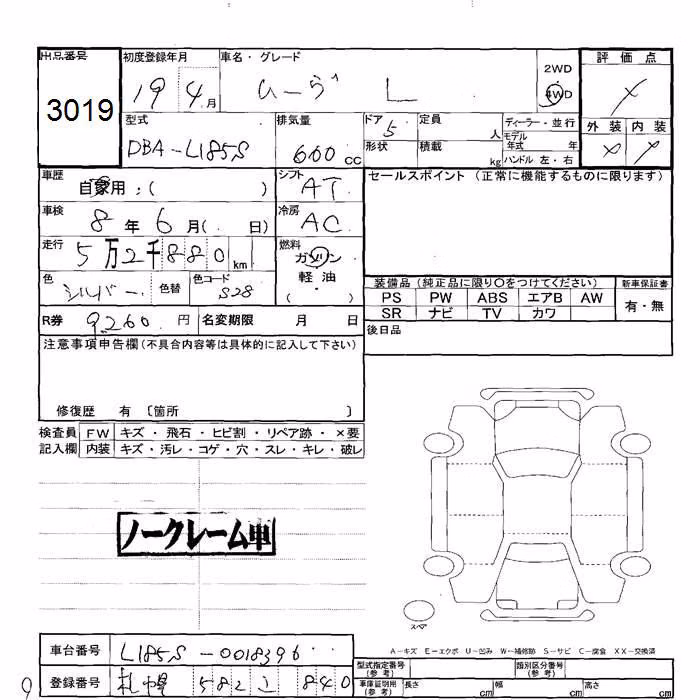 出品番号
3019
初度登録年月
19 4月
車名・グレード
ムーヴ L
2WD
4WD
評価点
外装 内装
型式
DBA-L185S
排気量
660 cc
ドア
5
形状
定員
人
積載
kg
ディーラー・並行
モデル
年式 年
ハンドル 左・右
車歴
自家用:( )
シフト
AT
セールスポイント (正常に機能するものに限ります)
車検
8年6月( 日)
冷房
AC
走行
5万2千880km
燃料
ガソリン
軽油
( )
色
シルバー
色替
色コード
S28
装備品 (純正品に限り〇をつけてください)
新車保証書
PS PW ABS エアB AW
有・無
SR ナビ TV カワ
R券 9,260円
名変期限 月 日
後日品
注意事項申告欄(不具合内容等は具体的に記入して下さい)
修復歴 有 〔箇所 〕
検査員 FW キズ・飛石・ヒビ割・リペア跡・×要
記入欄 内装 キズ・汚レ・コゲ・穴・スレ・キレ・破レ
ノークレーム車
スペア
A-キズ E-エクボ U-凹み W-補修跡 S-サビ C-腐食 XX-交換済
車台番号 L185S-0018396
登録番号 札幌 582 こ 840
型式指定番号
(参考)
類別区分番号
(参考)
車庫証明用
(参考)
長さ cm 幅 cm 高さ cm
9